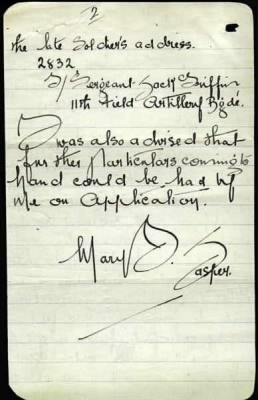 2
the late Soldier's address.
2832
T/ Sergeant Jack Griffin
11th Field Artillery Bgde.
I was also advised that
further Particulars coming to
hand could be had by
me on Application.
Mary D. Jasper.